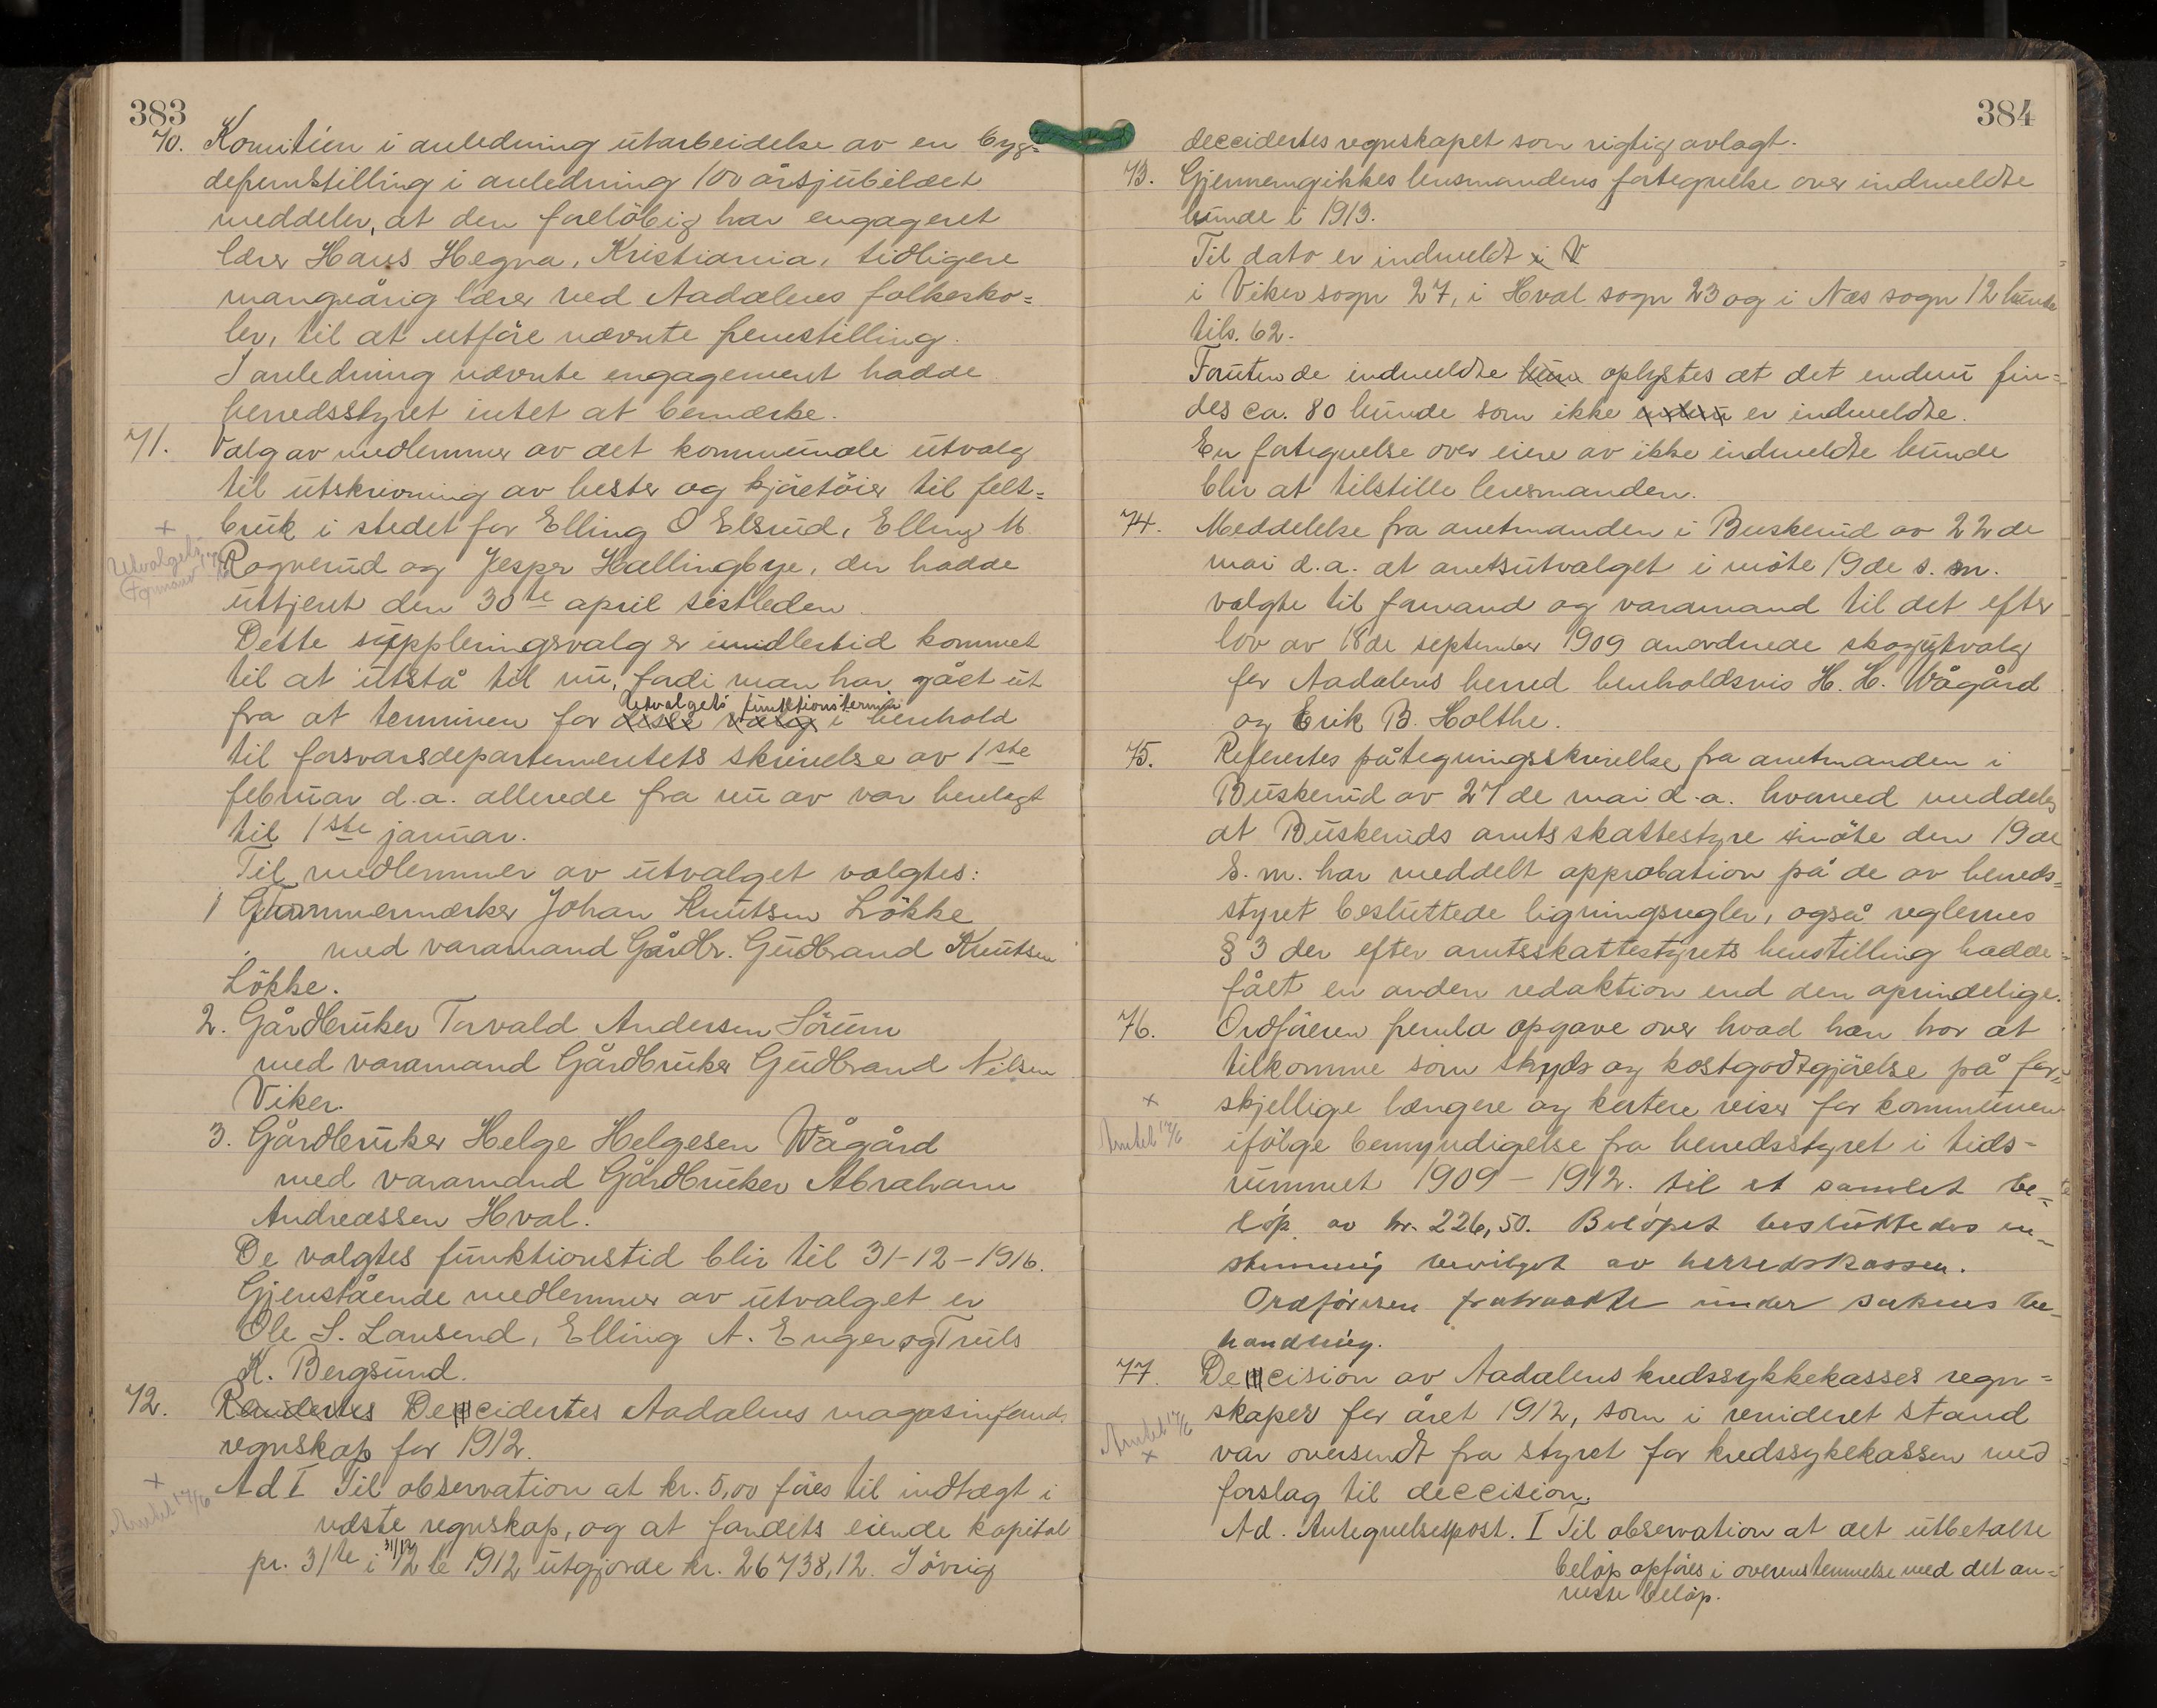 383
70. Komitéen i anledning utarbeidelse av en byg=
defremstilling i anledning 100 årsjubilæet
meddeler, at den foreløbig har engageret
lærer Hans Hegna, Kristiania, tidligere
mangeårig lærer ved Aadalens folkesko=
ler, til at utføre nævnte fremstilling.
I anledning nævnte engagement hadde
herredsstyret intet at bemerke.
71. Valg av medlemmer av det kommunale utvalg
til utskrivning av hester og kjøretøier til felt=
+ bruk i stedet for Elling O Elsrud, Elling M
Utvalgets formand 17/6
Rognerud og Jesper Hallingbye, der hadde
uttjent den 30te april sistleden.
Dette suppleringsvalg er imidlertid kommet
til at utstå til nu, fordi man har gået ut
utvalgets funktionstermin
fra at terminen for disse valg i henhold
til forsvarsdepartementets skrivelse av 1ste
februar d.a. allerede fra nu av var henlagt
til 1ste januar.
Til medlemmer av utvalget valgtes:
1 Tømmermerker Johan Knutsen Løkke
med varamand Gårdbr. Gudbrand Knutsen
Løkke.
2. Gårdbruker Torvald Andersen Sørum
med varamand Gårdbruker Gudbrand Nilsen
Viker.
3. Gårdbruker Helge Helgesen Wågård
med varamand Gårdbruker Abraham
Andreassen Hval.
De valgtes funktionstid blir til 31-12-1916.
Gjenstående medlemmer av utvalget er
Ole S. Lansend, Elling A. Enger og Truls
K. Bergsund.
72. Revidertes Deccidertes Aadalens magasinfonds
regnskap for 1912.
+ Ad I Til observation at kr. 5,00 føres til indtægt i
Anført 17/6
næste regnskap, og at fondets eiende kapital
31/12
pr. 31te i 12te 1912 utgjorde kr. 26738,12. Iøvrig
384
deccidertes regnskapet som rigtig avlagt.
73. Gjennemgikkes lensmandens fortegnelse over indmeldte
hunde i 1913.
Til dato er indmeldt i V
i Viker sogn 27, i Hval sogn 23 og i Næs sogn 12 hunde
tils. 62.
Foruten de indmeldte hun oplystes at det endnu fin=
des ca. 80 hunde som ikke endnu er indmeldte.
En fortegnelse over eiere av ikke indmeldte hunde
blir at tilstille lensmanden.
74. Meddelelse fra amtmanden i Buskerud av 22de
mai d.a. at amtsutvalget i møte 19de s.m.
valgte til formand og varamand til det efter
lov av 18de september 1909 anordnede skogutvalg
for Aadalens herred henholdsvis H. H. Wågård
og Erik B. Holthe.
75. Refertes påtegningsskrivelse fra amtmanden i
Buskerud av 27de mai d.a. hvormed meddeles
at Buskeruds amtsskattestyre i møte den 19de
s.m. har meddelt approbation på de av herreds=
styret besluttede ligningsregler, også reglernes
§ 3 der efter amtsskattestyrets henstilling hadde
fået en anden redaktion end den oprindelige.
76. Ordføreren fremla opgave over hvad han har at
tilkomme som skyds og kostgodtgjørelse på for=
+ skjellige længere og kortere reiser for kommunen
Anført 17/6
ifølge bemyndigelse fra herredsstyret i tids=
rummet 1909 - 1912. til et samlet be=
løp av kr. 226,50. Beløpet besluttedes en=
stemmig bevilget av herredskassen.
Ordføreren fratraadte under sakens be=
handling.
77. Deccision av Aadalens kredssykkekasses regn=
skaper for året 1912, som i revideret stand
Anført 17/6
+ var oversendt fra styret for kredssykekassen med
forslag til deccision.
Ad. Antegnelsespost. I Til observation at det utbetalte
beløp opføres i overensstemmelse med det an=
viste beløp.